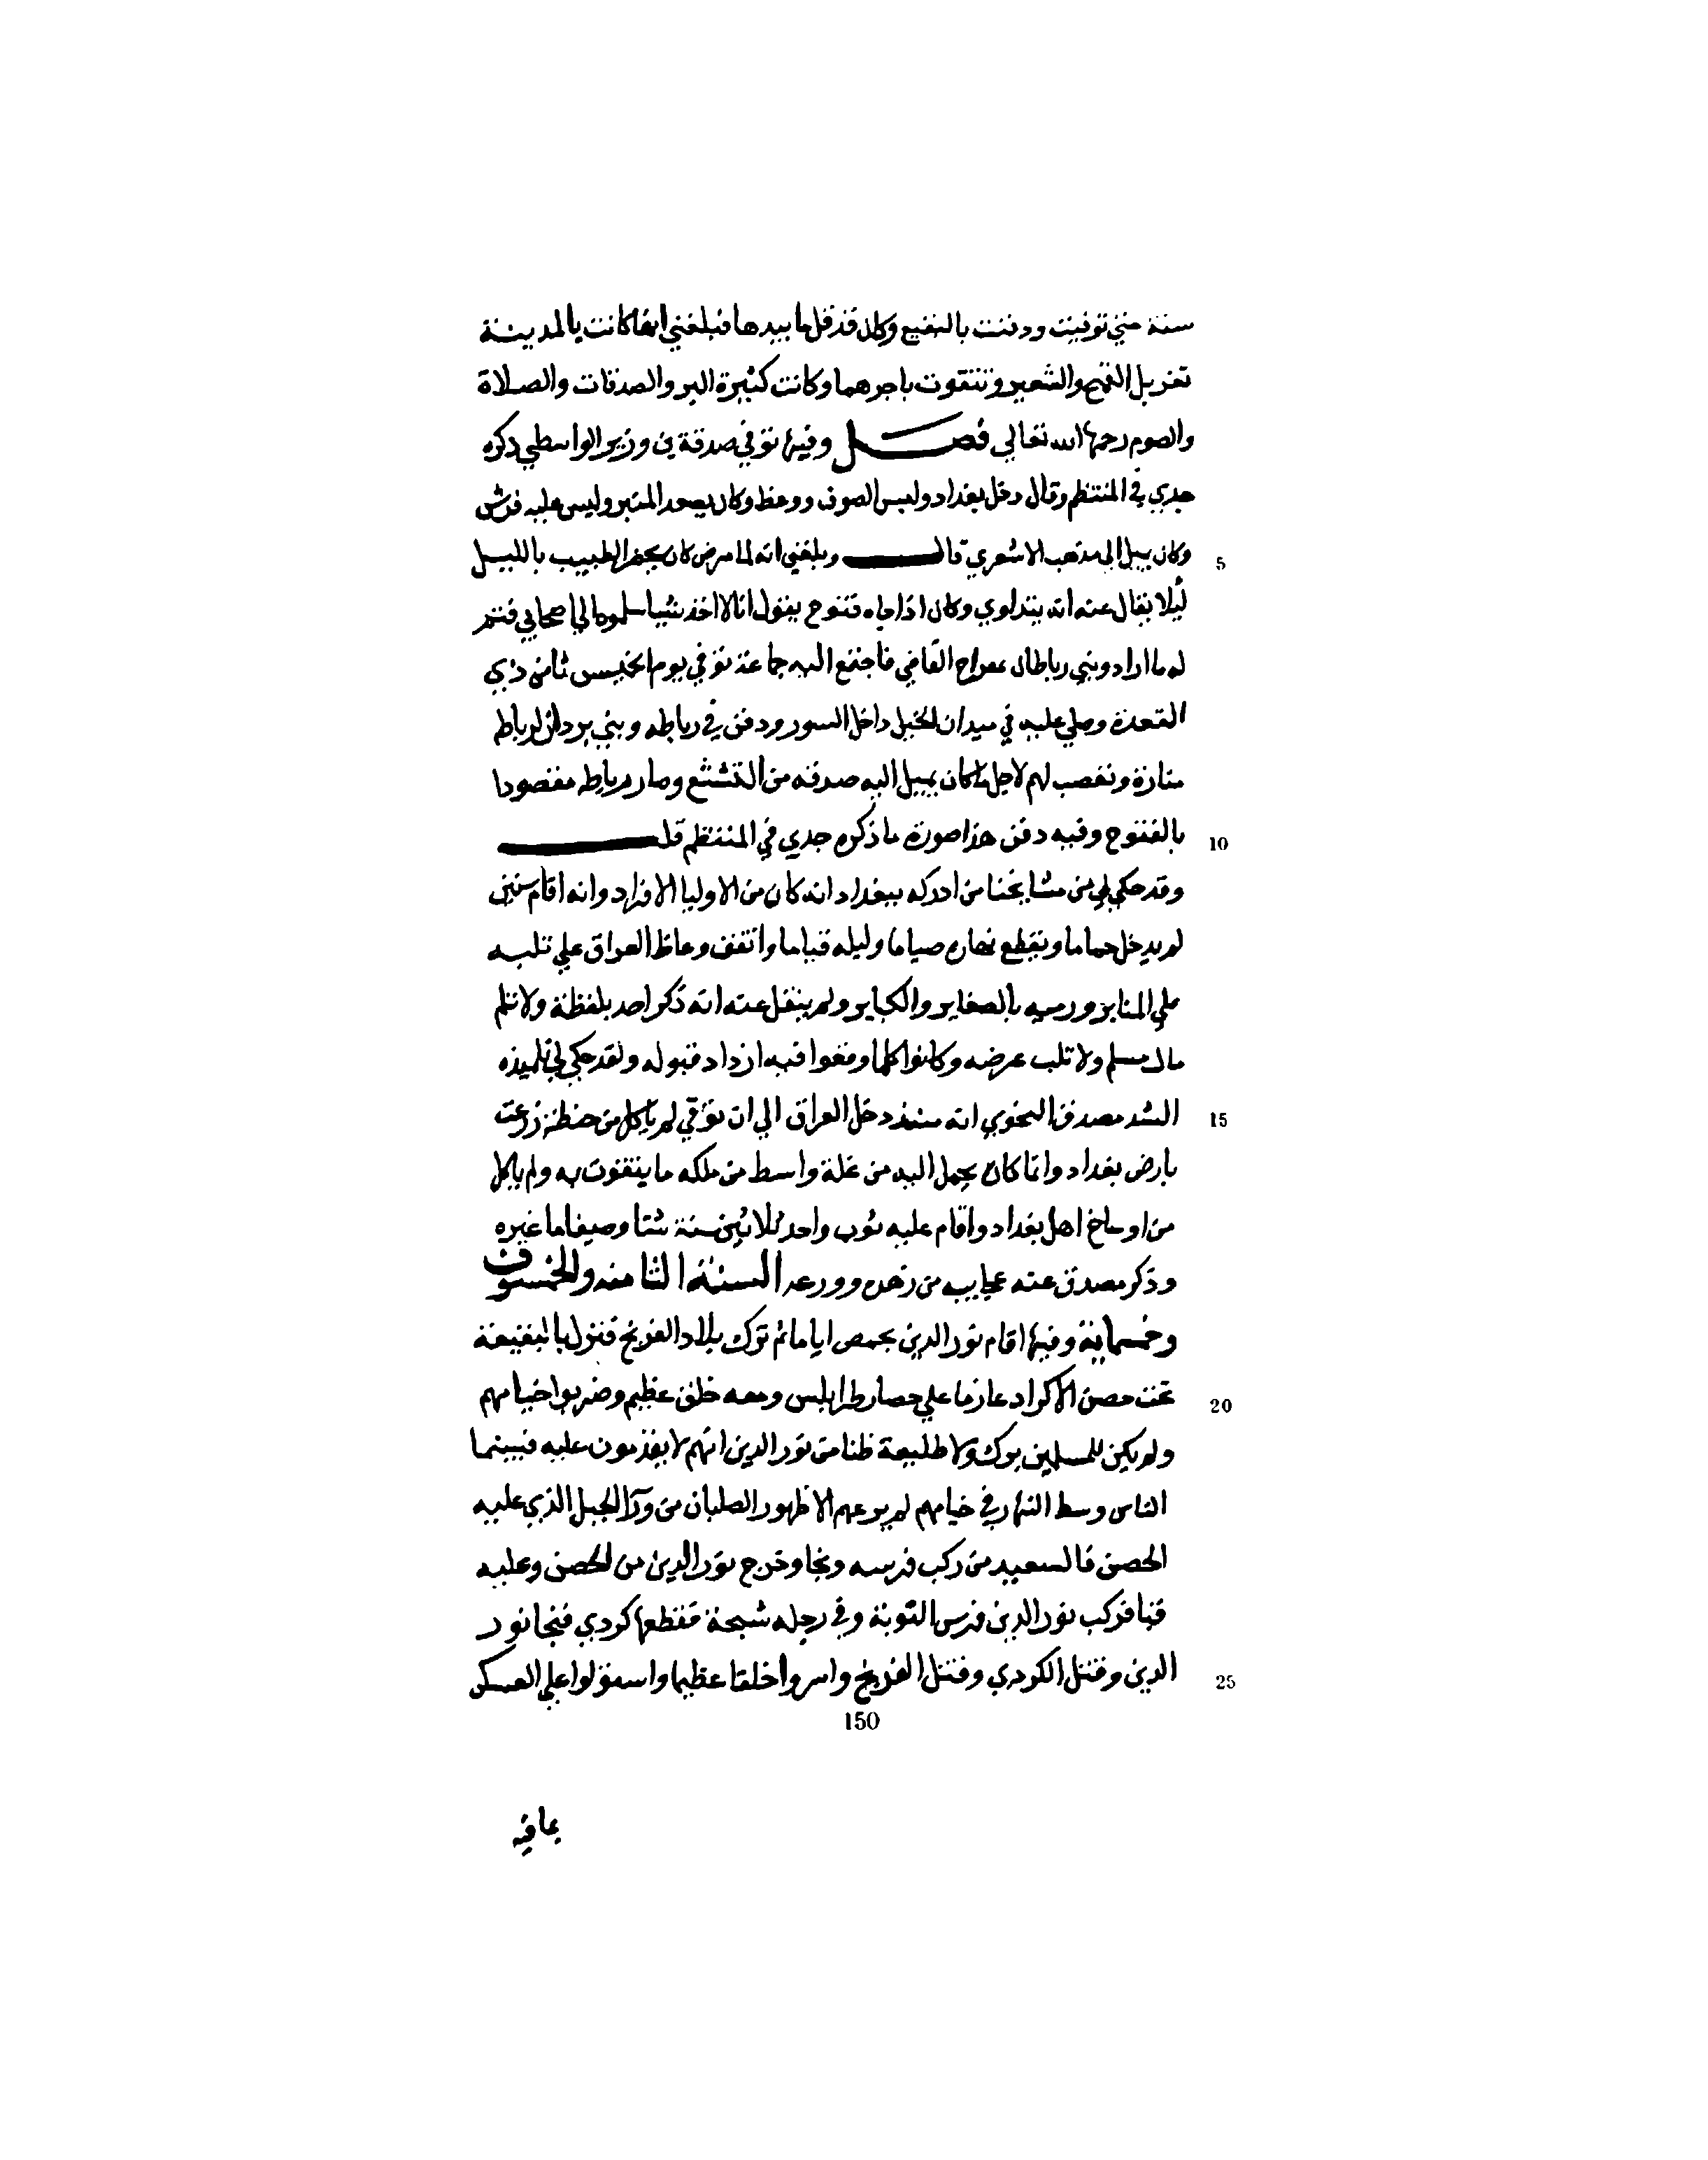 سنة حتي توفيت ودفنت بالبقيع وكان قد قل ما بيدها فبلغني انها كانت بالمدينة
تغربل القمح والشعير وتتقوت باجرهما وكانت كثيرة البر والصدقات والصلاة
والصوم رحمها الله تعالي فصل وفيها توفي صدقة بن وزير الواسطي ذكره
جدي في المنتظم وقال دخل بغداد ولبس الصوف ووعظ وكان يصعد المنبر وليس عليه فرش
5 وكان يميل الي مذهب الاشعري قال وبلغني انه لما مرض كان يحضر الطبيب بالليل
ليلا يقال عنه انه يتداوي وكان اذا جاه فتوح يقول انا لا اخذ شيا سلموه الي اصحابي فتم
له ما اراد وبني رباطا في القاضي فاجتمع اليه جماعة توفي يوم الخميس ثامن ذي
القعدة وصلي عليه في ميدان الخيل داخل السور ودفن في رباطه وبني يزدن لرباطه
منارة وتعصب لهم لاجل ما كان يميل اليه صدقه من التشيع وصار رباطه مقصودا
10 بالفتوح وفيه دفن هذا صورة ما ذكره جدي في المنتظم قلت
وقد حكي لي من مشايخنا من ادركه ببغداد انه كان من الاوليا الافراد وانه اقام سنين
لم يدخل حماما ويقطع نهاره صياما وليله قياما واتفق وعاظ العراق علي ثلبه
علي المنابر ورميه بالصغاير والكباير ولم ينقل عنه انه ذكر احد بلفظة ولا ثلم
مال مسلم ولا ثلب عرضه وكانوا كلما وقعوا فيه ازداد قبوله ولقد حكي لي تلميذه
15 السند مصدق النحوي انه منذ دخل العراق الي ان توفي لم ياكل من حنطة زرعت
بارض بغداد وانما كان يحمل اليه من غلة واسط من ملكه ما يتقوت به ولم ياكل
من اوساخ اهل بغداد واقام عليه ثوب واحد ثلاثين سنة شتا وصيفا ما غيره
وذكر مصدق عنه عجايب من زهده وورعه السنة الثامنه والخمسون
وخمسماية وفيها اقام نور الدين بحمص اياما ثم ترك بلاد الفرنج فنزل بالبقيعة
20 تحت حصن الاكراد عازما علي حصار طرابلس ومعه خلق عظيم وضربوا خيامهم
ولم يكن للمسلمين يزك ولا طليعة ظنا من نور الدين انهم لا يقدمون عليه فبينما
الناس وسط النهار في خيامهم لم يرعهم الا ظهور الصلبان من ورآ الجبل الذي عليه
الحصن فالسعيد من ركب فرسه ونجا وخرج نور الدين من الحصن وعليه
قبا فركب نور الدين فرس النوبة وفي رجله شبحة فقطعها كردي فنجا نور
25 الدين وقتل الكردي وقتل الفرنج واسروا خلقا عظيما واستولوا علي العسكر
150
بما فيه